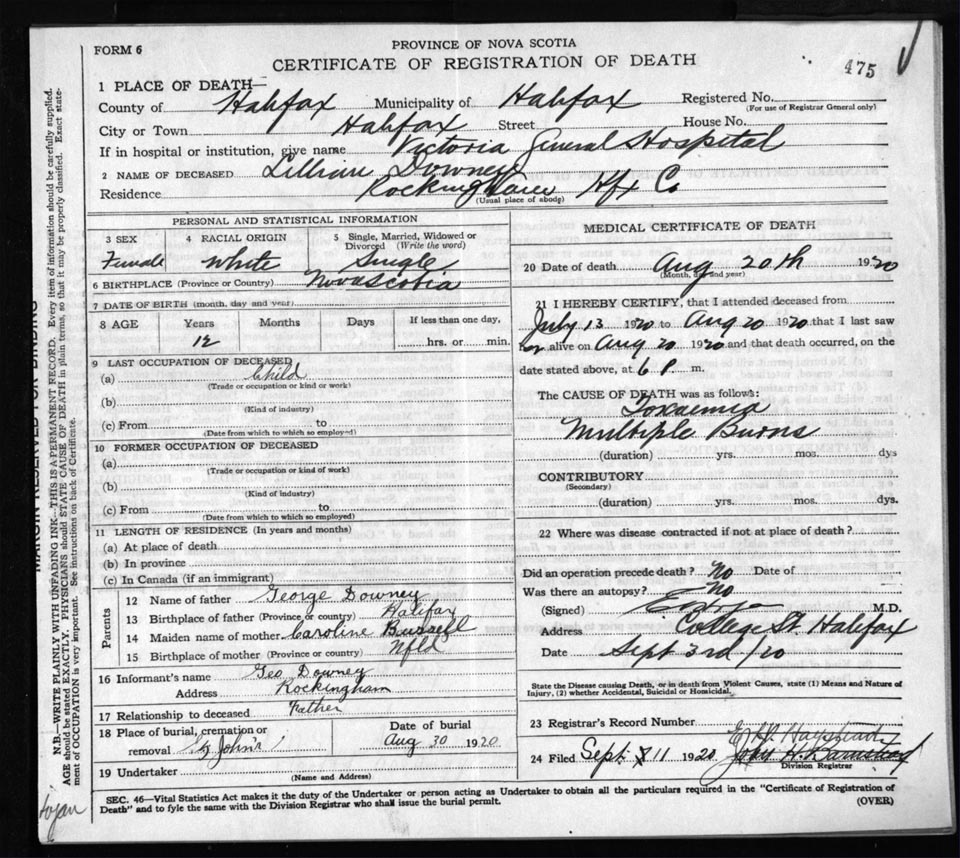 FORM 6
PROVINCE OF NOVA SCOTIA
CERTIFICATE OF REGISTRATION OF DEATH
475
1 PLACE OF DEATH—
County of Halifax Municipality of Halifax Registered No.
(For use of Registrar General only)
City or Town Halifax Street House No.
If in hospital or institution, give name Victoria General Hospital
2 NAME OF DECEASED Lillian Downey
Residence Rockingham Hfx Co.
(Usual place of abode)
PERSONAL AND STATISTICAL INFORMATION
3 SEX 4 RACIAL ORIGIN 5 Single, Married, Widowed or Divorced (Write the word)
Female White Single
6 BIRTHPLACE (Province or Country) Nova Scotia
7 DATE OF BIRTH (month, day and year)
8 AGE Years Months Days If less than one day,
12 hrs. or min.
9 LAST OCCUPATION OF DECEASED
(a) Child
(Trade or occupation or kind or work)
(b)
(Kind of industry)
(c) From to
(Date from which to which so employed)
10 FORMER OCCUPATION OF DECEASED
(a)
(Trade or occupation or kind of work)
(b)
(Kind of industry)
(c) From to
(Date from which to which so employed)
11 LENGTH OF RESIDENCE (In years and months)
(a) At place of death
(b) In province
(c) In Canada (if an immigrant)
Parents
12 Name of father George Downey
13 Birthplace of father (Province or country) Halifax
14 Maiden name of mother Caroline
15 Birthplace of mother (Province or country) Nfld
16 Informant's name Geo Downey
Address Rockingham
17 Relationship to deceased Father
18 Place of burial, cremation or removal St John's
Date of burial
Aug 30 1920
19 Undertaker
(Name and Address)
MEDICAL CERTIFICATE OF DEATH
20 Date of death Aug 20th 1920
(Month, day and year)
21 I HEREBY CERTIFY, that I attended deceased from
July 13 1920 to Aug 20 1920 that I last saw
her alive on Aug 20 1920 and that death occurred, on the
date stated above, at 6 P m.
The CAUSE OF DEATH was as follows:
Toxaemia
Multiple Burns
(duration) yrs. mos. dys
CONTRIBUTORY
(Secondary)
(duration) yrs. mos. dys.
22 Where was disease contracted if not at place of death?
Did an operation precede death? No Date of
Was there an autopsy? No
(Signed) M.D.
Address College St. Halifax
Date Sept 3rd /20
State the Disease causing Death, or in death from Violent Causes, state (1) Means and Nature of
Injury, (2) whether Accidental, Suicidal or Homicidal.
23 Registrar's Record Number
24 Filed Sept 11 1920 John H. Barnstead
Division Registrar
SEC. 46—Vital Statistics Act makes it the duty of the Undertaker or person acting as Undertaker to obtain all the particulars required in the "Certificate of Registration of
Death" and to fyle the same with the Division Registrar who shall issue the burial permit.
(OVER)
MARGIN RESERVED FOR BINDING
N.B.—WRITE PLAINLY WITH UNFADING INK—THIS IS A PERMANENT RECORD. Every item of information should be carefully supplied.
AGE should be stated EXACTLY. PHYSICIANS should STATE CAUSE OF DEATH in plain terms, so that it may be properly classified. Exact statement of OCCUPATION is very important. See instructions on back of Certificate.